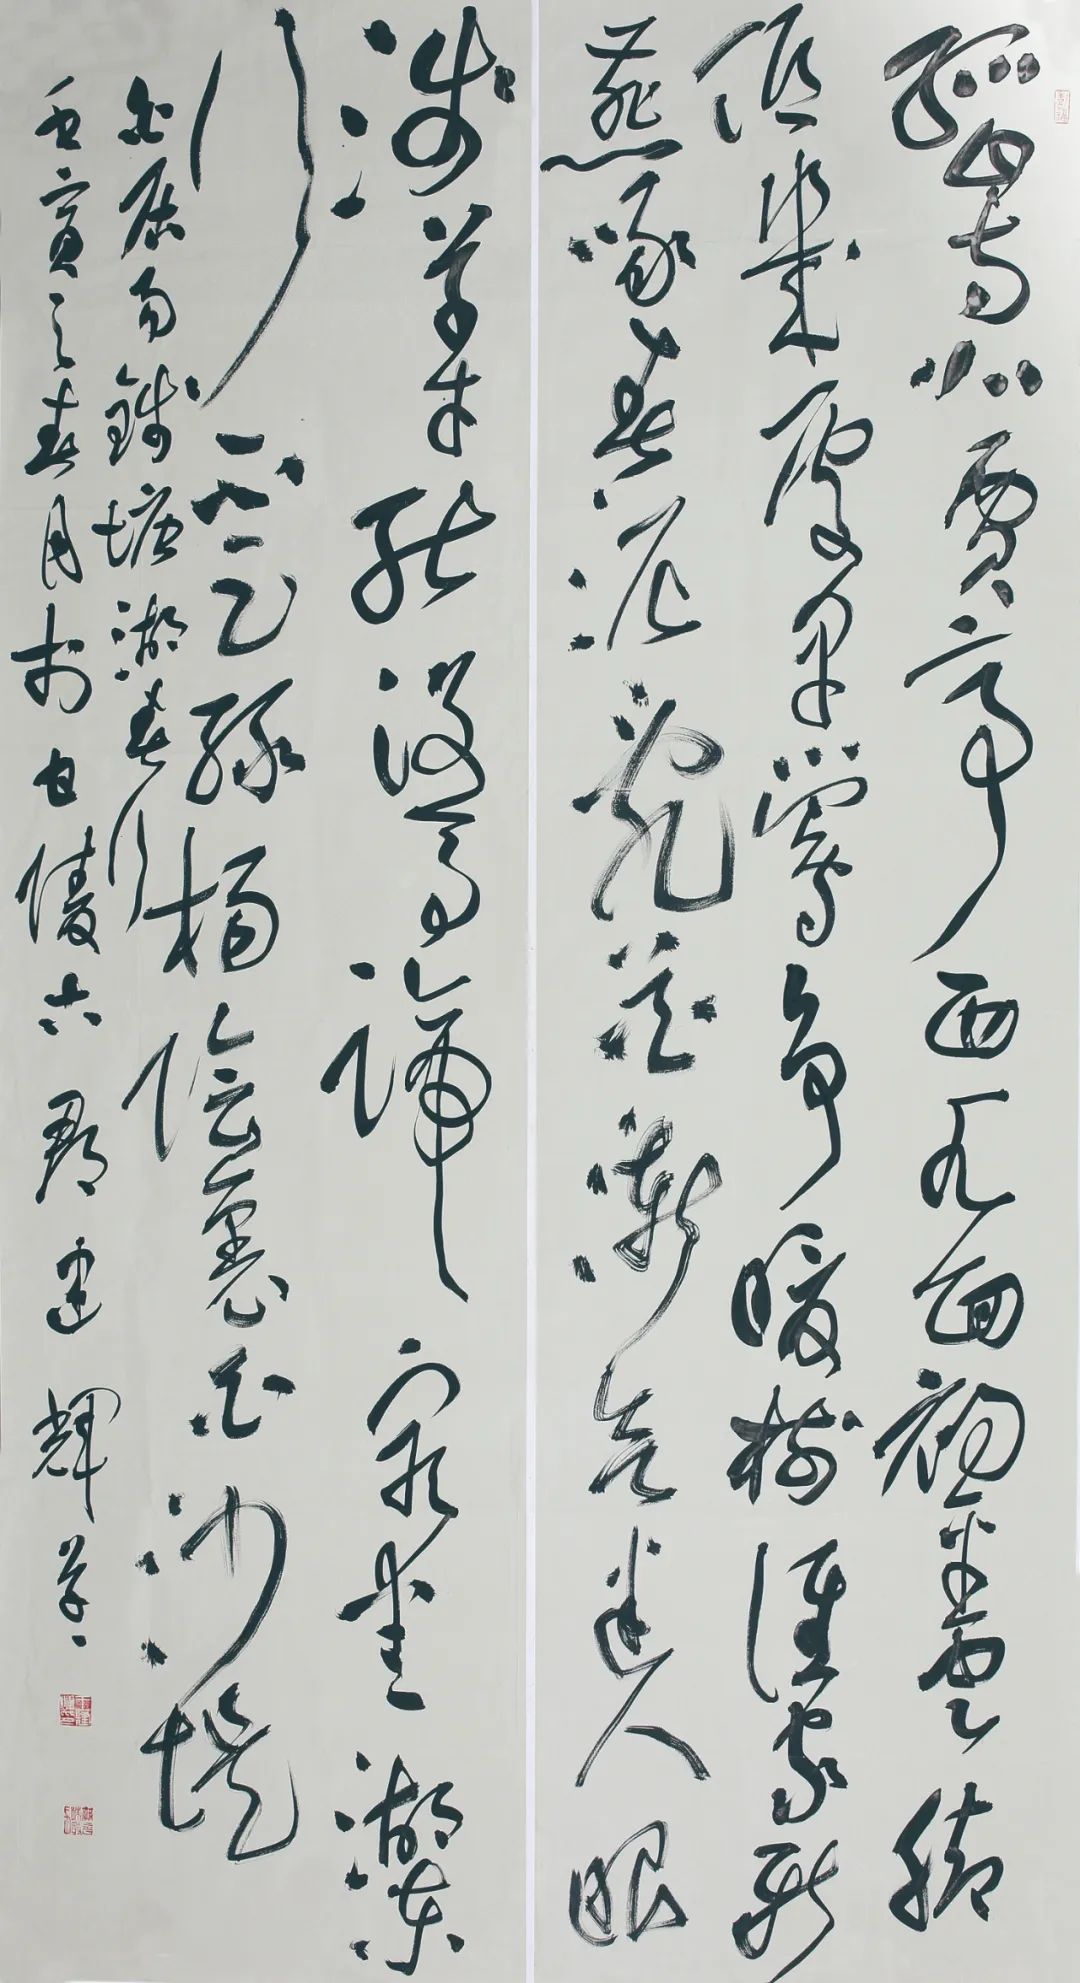 孤山寺北賈亭西水面初平雲腳
低幾處早鶯爭暖樹誰家新
燕啄春泥亂花漸欲迷人眼
淺草才能沒馬蹄最愛湖東
行不足綠楊陰裏白沙堤
白居易錢塘湖春行
壬寅之春月於甘陵古郡建輝草